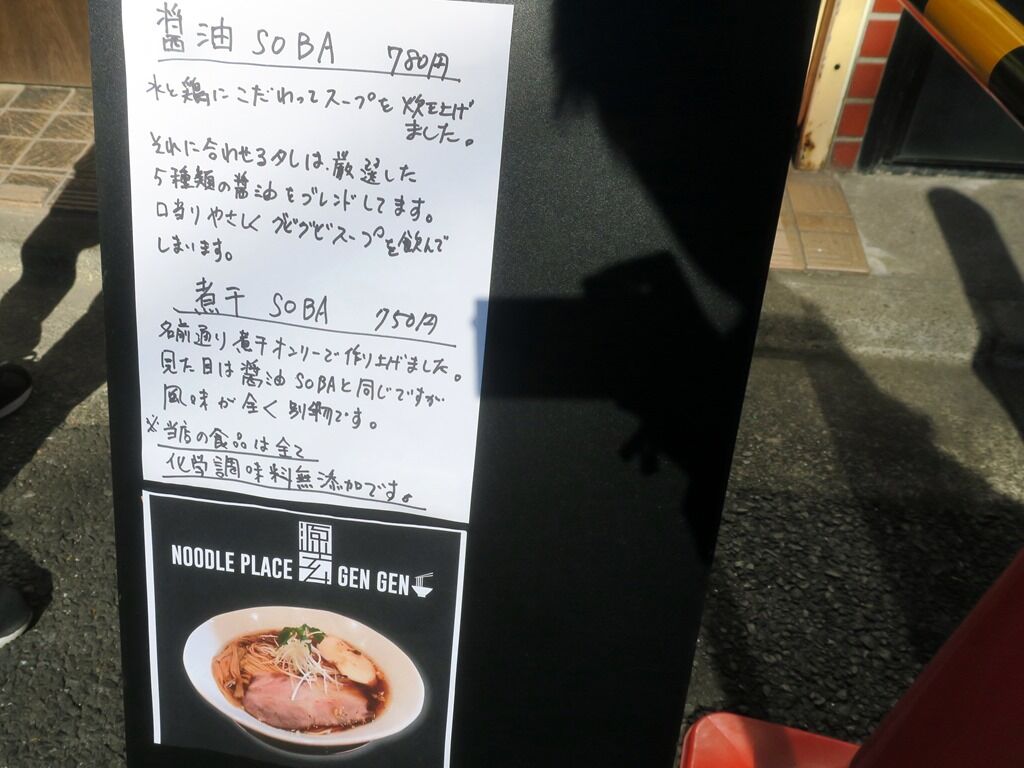 醤油 SOBA 780円
水と鶏にこだわってスープを炊き上げ
ました。
それに合わせるタレは、厳選した
5種類の醤油をブレンドしてます。
口当りやさしくグビグビスープを飲んで
しまいます。
煮干 SOBA 750円
名前通り煮干オンリーで作り上げました。
見た目は醤油SOBAと同じですが
風味が全く別物です。
※当店の食品は全て
化学調味料無添加です。
NOODLE PLACE 源玄 GEN GEN